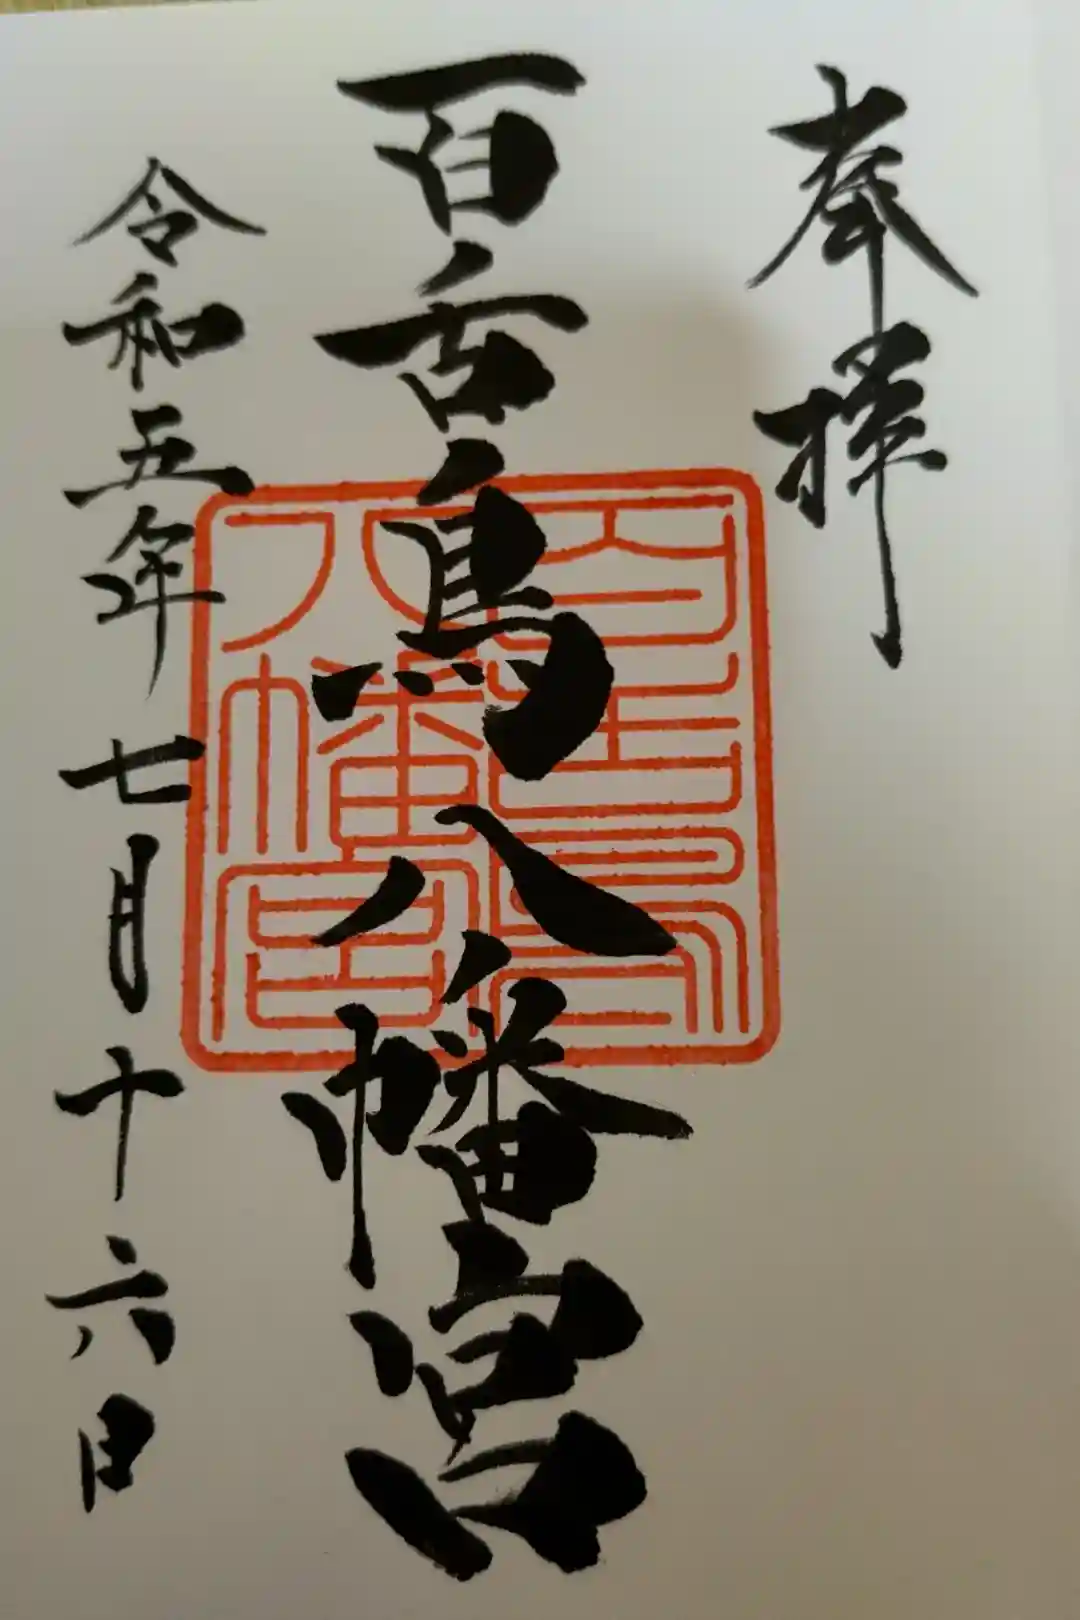 奉拝
百舌鳥八幡宮
令和五年七月十六日
百舌鳥
八幡宮